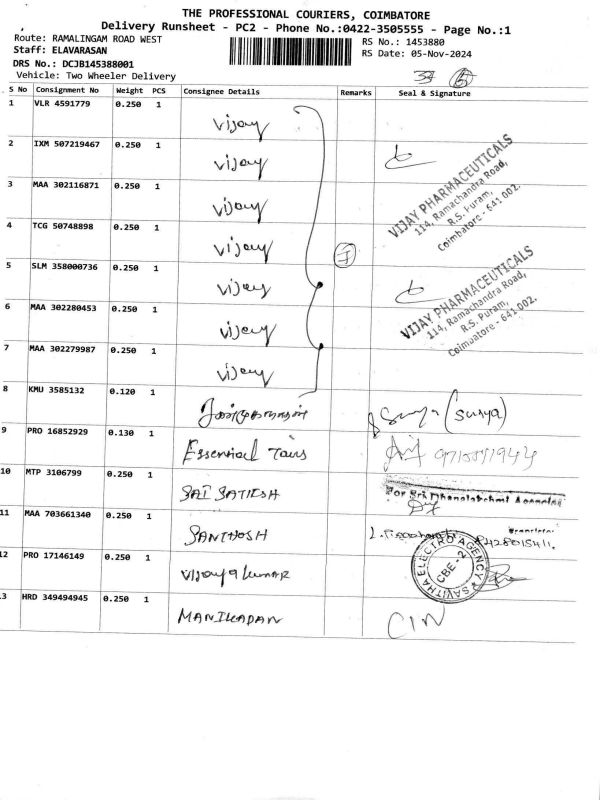 THE PROFESSIONAL COURIERS, COIMBATORE
Delivery Runsheet - PC2 - Phone No.:0422-3505555 - Page No.:1
Route: RAMALINGAM ROAD WEST
RS No.: 1453880
Staff: ELAVARASAN
RS Date: 05-Nov-2024
DRS No.: DCJB145388001
Vehicle: Two Wheeler Delivery
S No Consignment No Weight PCS Consignee Details Remarks Seal & Signature
1 VLR 4591779 0.250 1 Vijay
2 IXM 507219467 0.250 1 Vijay
3 MAA 302116871 0.250 1 Vijay
4 TCG 50748898 0.250 1 Vijay
5 SLM 358000736 0.250 1 Vijay
6 MAA 302280453 0.250 1 Vijay
7 MAA 302279987 0.250 1 Vijay
VIJAY PHARMACEUTICALS
114, Ramachandra Road,
R.S. Puram,
Coimbatore - 641 002.
VIJAY PHARMACEUTICALS
114, Ramachandra Road,
R.S. Puram,
Coimbatore - 641 002.
8 KMU 3585132 0.120 1 (Surya)
9 PRO 16852929 0.130 1 Essential
10 MTP 3106799 0.250 1 SAI SATIESH
For Sri Dhanalakshmi Agencies
11 MAA 703661340 0.250 1 SANTHOSH
12 PRO 17146149 0.250 1 Vijaya kumar
SAVITHA ELECTRO AGENCY
CBE - 2
13 HRD 349494945 0.250 1 MANIKADAN